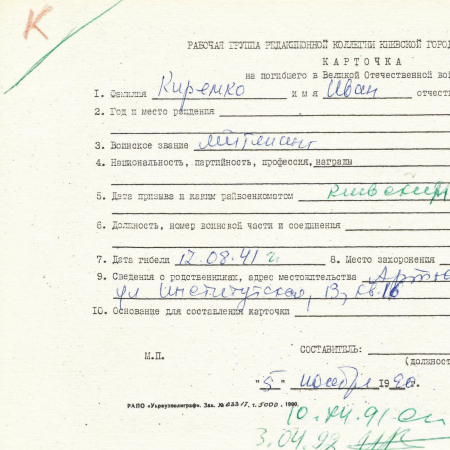 К
РАБОЧАЯ ГРУППА РЕДАКЦИОННОЙ КОЛЛЕГИИ КИЕВСКОЙ ГОРО
КАРТОЧКА
на погибшего в Великой Отечественной вой
1. Фамилия Киремко имя Иван отчест
2. Год и место рождения
3. Воинское звание лейтенант
4. Национальность, партийность, профессия, награды
5. Дата призыва и каким райвоенкоматом Киевским
6. Должность, номер воинской части и соединения
7. Дата гибели 12.08.41 г 8. Место захоронения
9. Сведения о родственниках, адрес местожительства
ул Институтская, 13, кв. 16
10. Основание для составления карточки
М.П.
СОСТАВИТЕЛЬ:
(должност
"5" ноября 1990г.
РАПО «Укрвузполиграф». Зак. № 03317, т. 5000. 1990.
10.XII.91
3.04.92